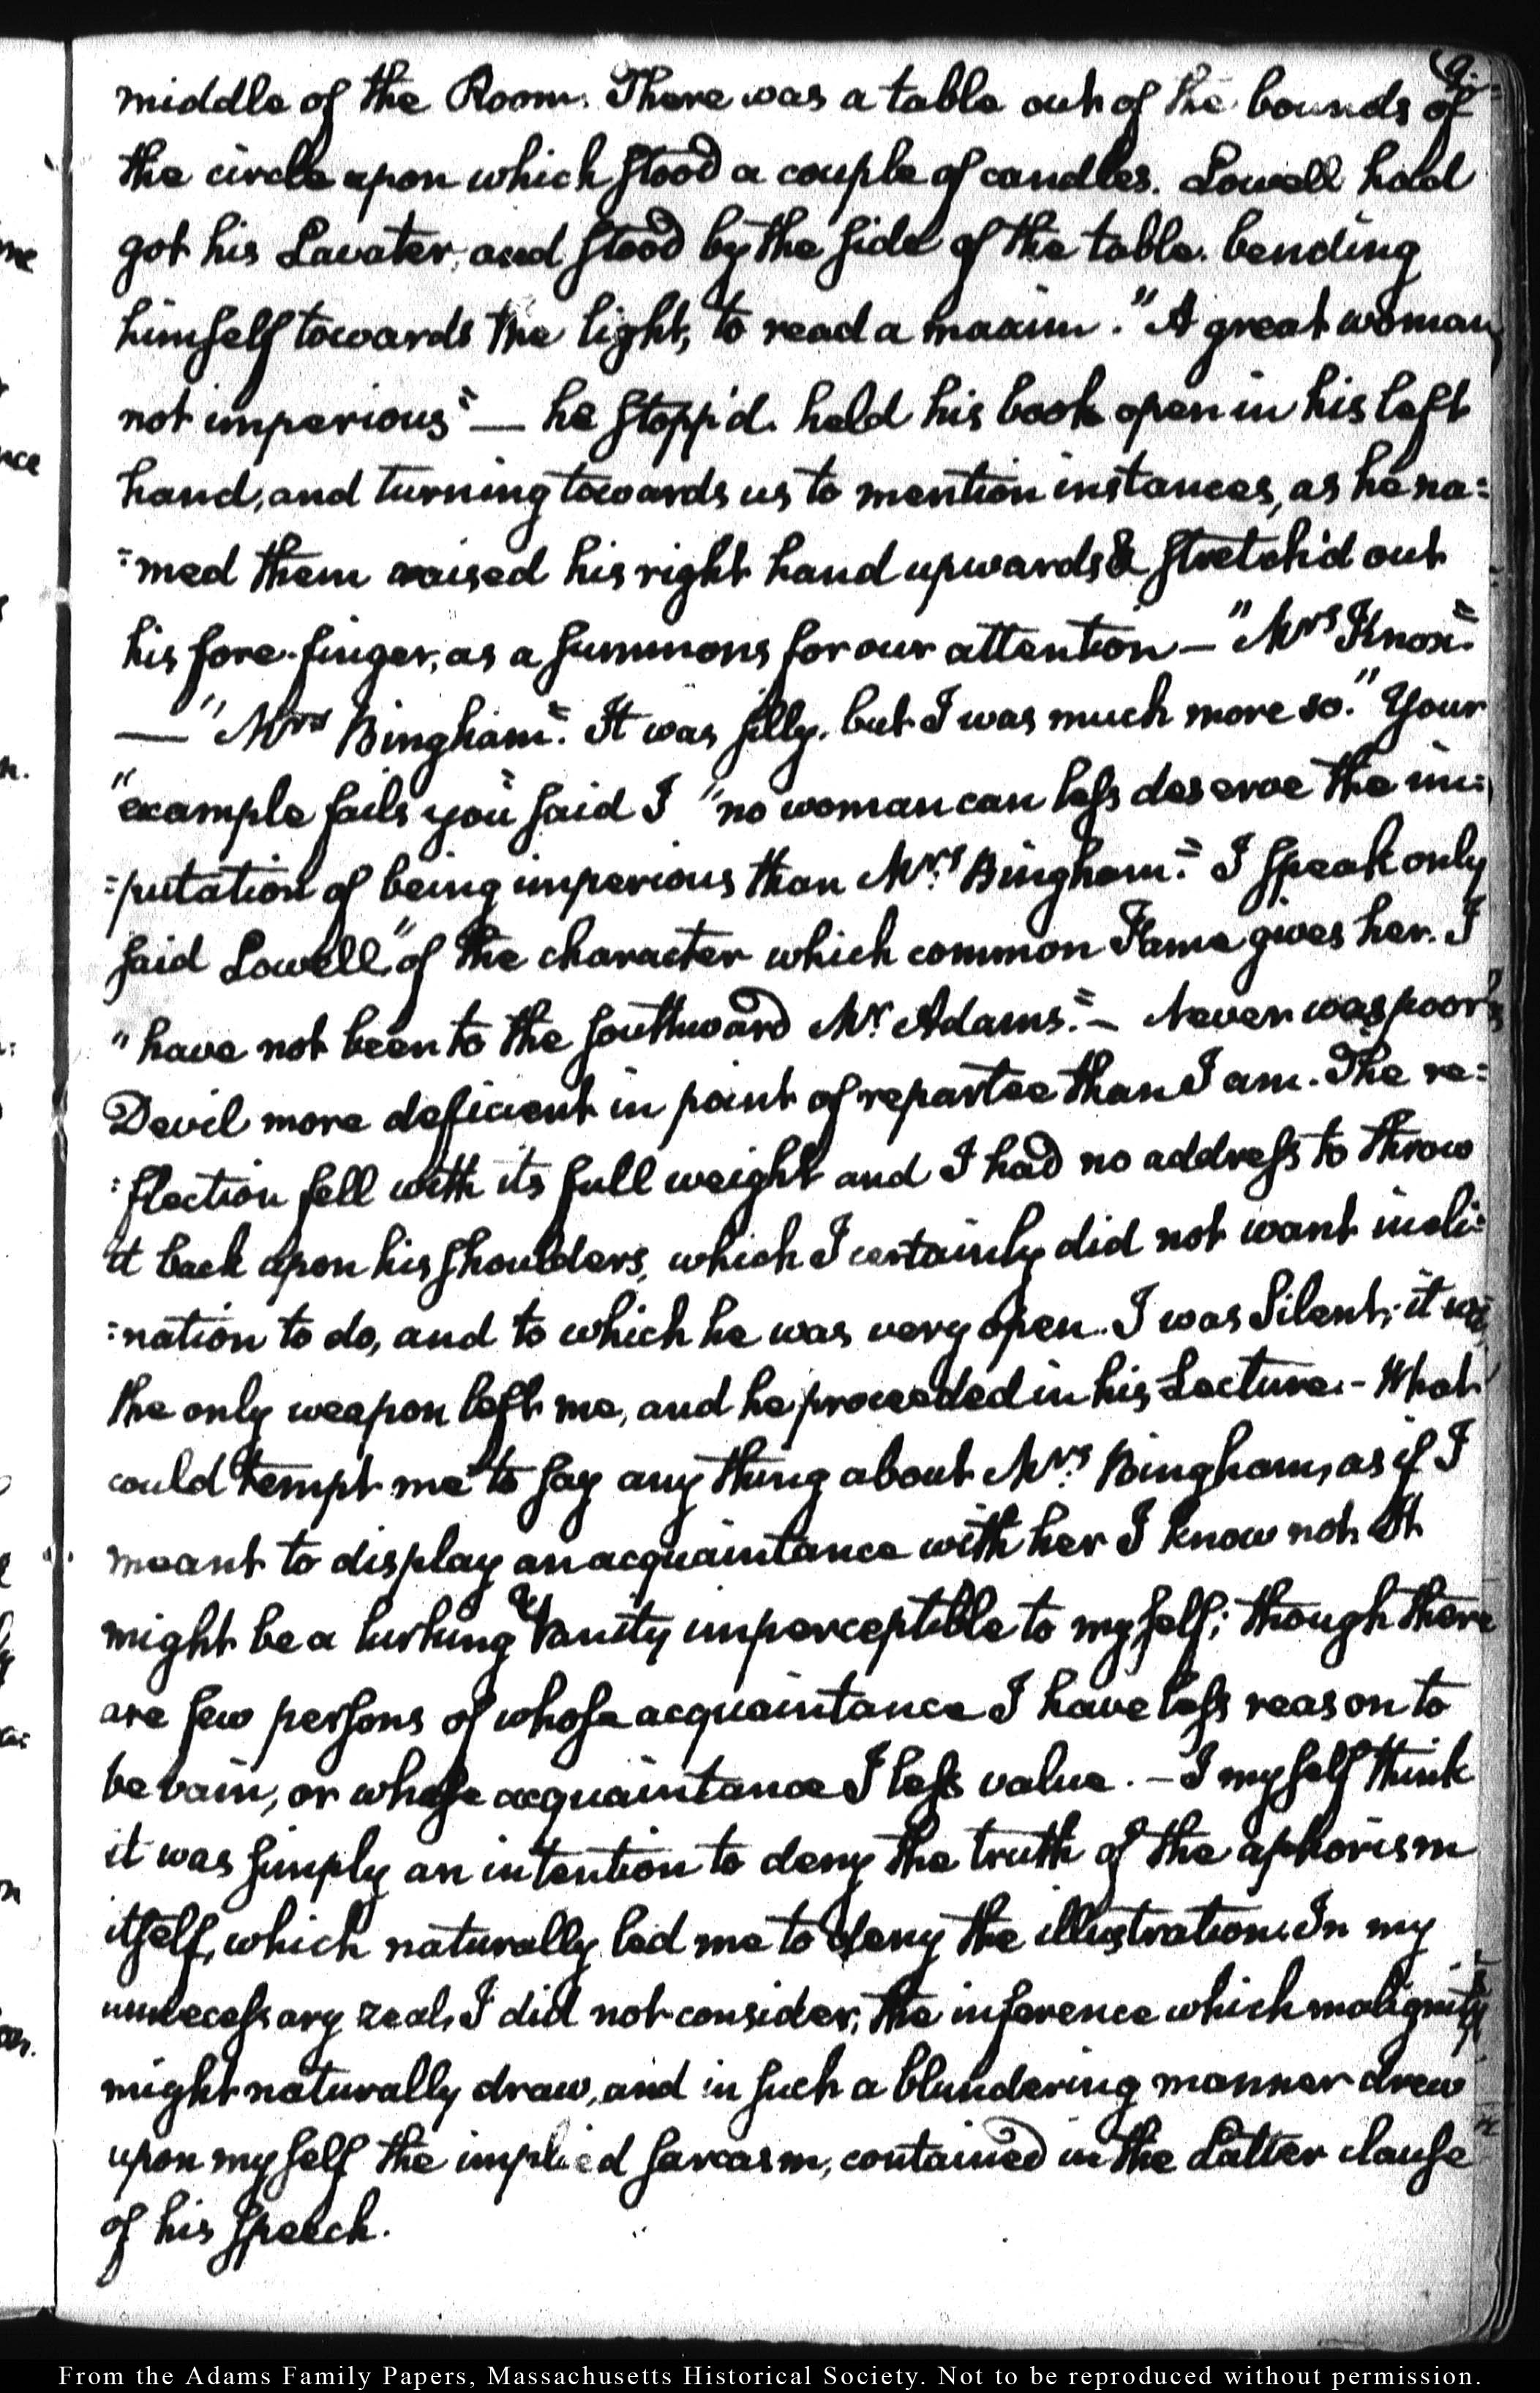 9.
middle of the Room. There was a table out of the bounds of
the circle upon which stood a couple of candles. Lowell had
got his Lavater, and stood by the side of the table. bending
himself towards the light, to read a maxim. "A great woman
not imperious" — he stopp'd. held his book open in his left
hand, and turning towards us to mention instances, as he na=
=med them raised his right hand upwards & stretch'd out
his fore-finger, as a summons for our attention — "Mrs Knox".
— "Mrs Bingham". It was silly. but I was much more so. "Your
"example fails you" said I "no woman can less deserve the im=
=putation of being imperious than Mrs. Bingham". I speak only
said Lowell "of the character which common Fame gives her. I
"have not been to the southward Mr. Adams". — Never was poor
Devil more deficient in point of repartee than I am. The re=
=flection fell with its full weight and I had no address to throw
it back upon his shoulders, which I certainly did not want incli=
=nation to do, and to which he was very open. I was Silent; it was
the only weapon left me, and he proceeded in his Lecture. — What
could tempt me to say any thing about Mrs. Bingham, as if I
meant to display an acquaintance with her I know not. It
might be a lurking vanity imperceptible to myself; though there
are few persons of whose acquaintance I have less reason to
be vain, or whose acquaintance I less value. — I myself think
it was simply an intention to deny the truth of the aphorism
itself, which naturally led me to deny the illustration. In my
unnecessary zeal, I did not consider, the inference which malignity
might naturally draw, and in such a blundering manner drew
upon myself the implied sarcasm, contained in the Latter clause
of his speech.
From the Adams Family Papers, Massachusetts Historical Society. Not to be reproduced without permission.